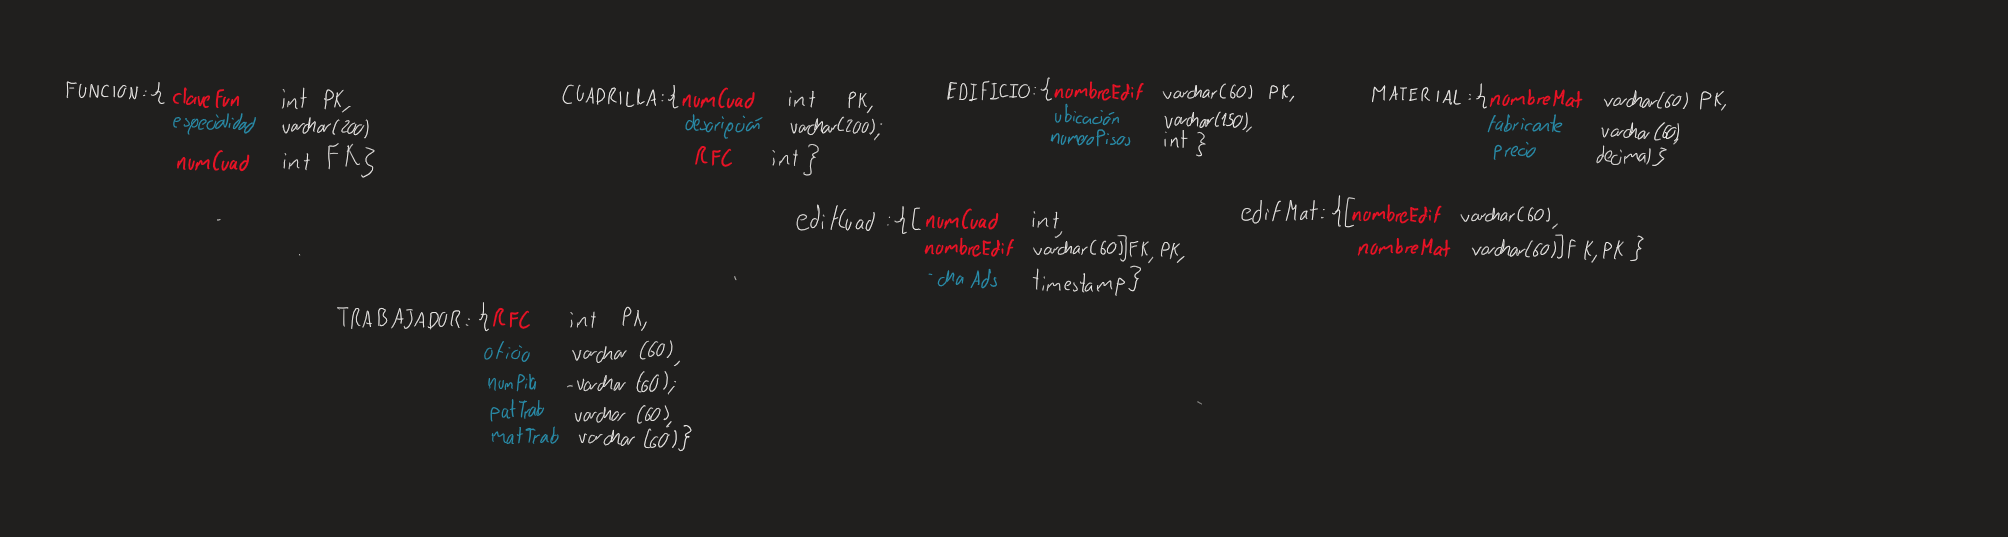 FUNCION:{ claveFun int PK,
especialidad varchar(200)
numCuad int FK}
CUADRILLA:{ numCuad int PK,
descripción varchar(200);
RFC int}
EDIFICIO:{ nombreEdif varchar(60) PK,
ubicación varchar(150),
numeroPisos int }
MATERIAL:{ nombreMat varchar(60) PK,
fabricante varchar(60)
precio decimal}
edifCuad:{[ numCuad int,
nombreEdif varchar(60)]FK, PK,
timestamp}
edifMat:{[ nombreEdif varchar(60),
nombreMat varchar(60)]FK, PK }
TRABAJADOR:{ RFC int PK,
oficio varchar (60),
varchar (60);
patTrab varchar (60),
matTrab varchar (60)}